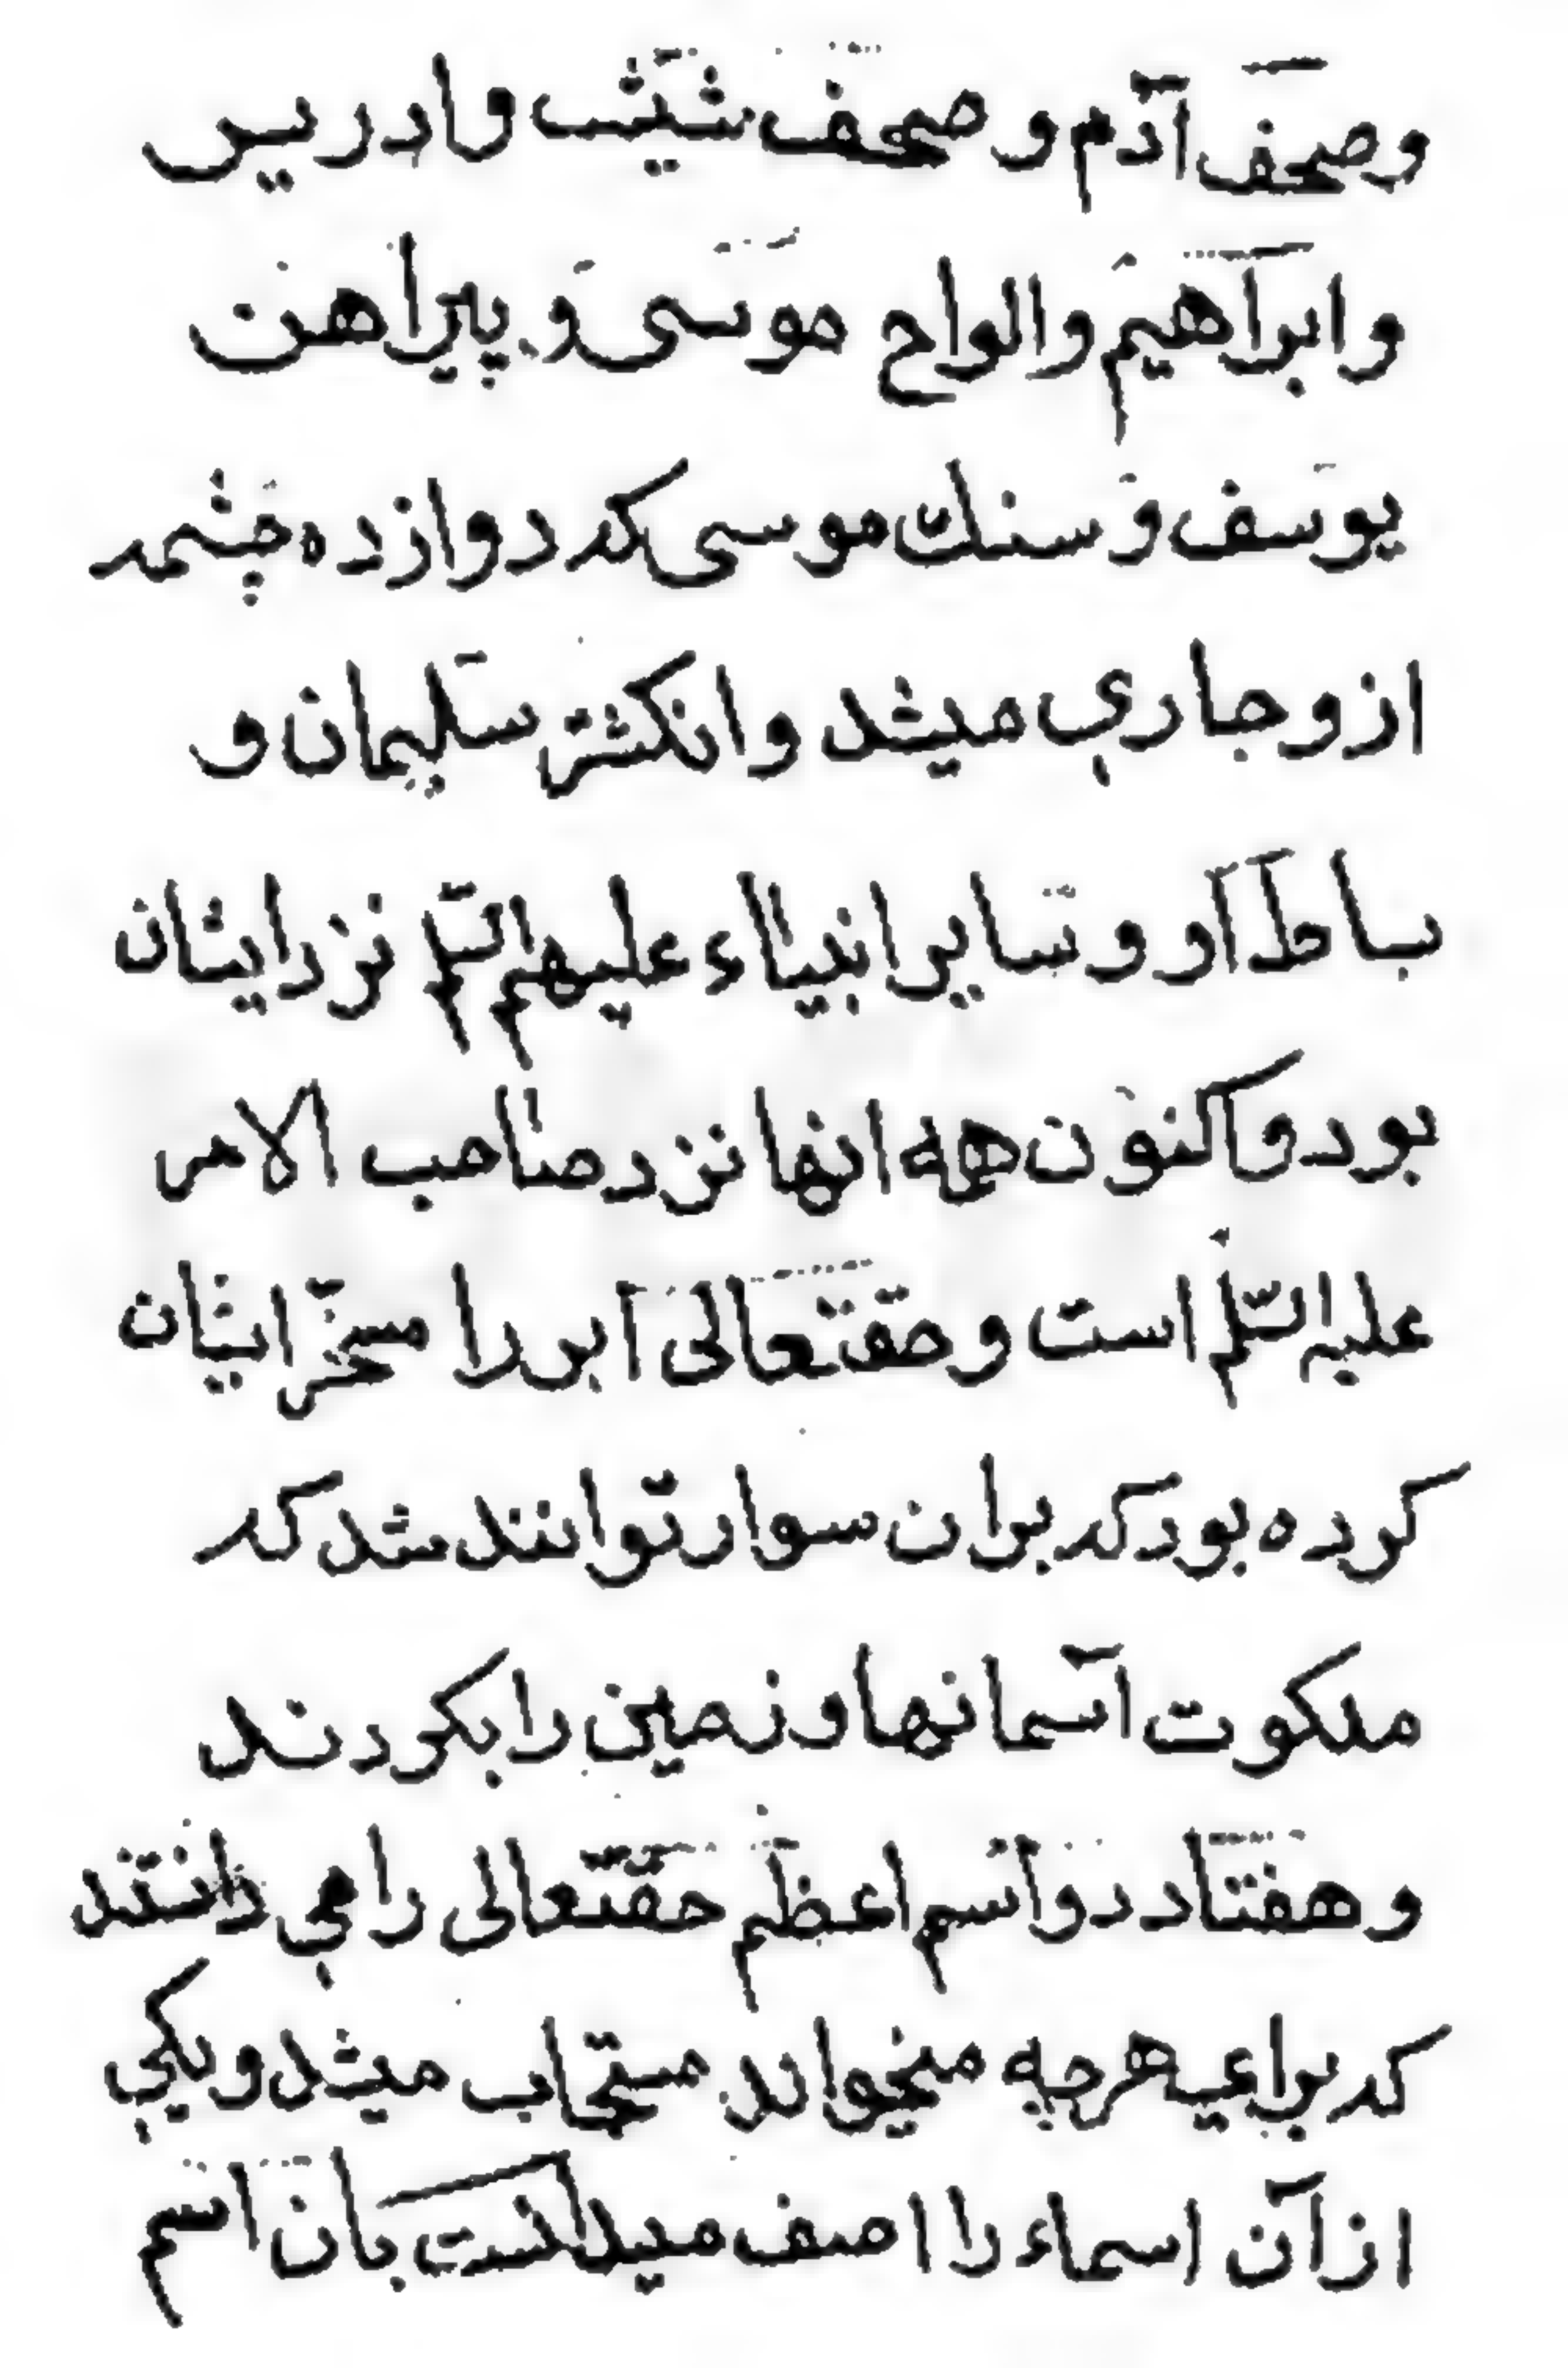 وصحف آدم و صحف شیث وادریس
وابراهیم والواح موسی و پیراهن
یوسف و سنك موسی که دوازده چشمه
ازو جاری میشد وانکشتر سلیمان و
بساط او و سایر انبیاء علیهم السّلم نزد ایشان
بود واکنون همه انها نزد صاحب الامر
علیه السّلم است و حقتعالی ابر را مسخّر ایشان
کرده بود که بران سوار توانند شد که
ملکوت آسمانها وزمین را بکردند
وهفتاد دو اسم اعظم حقتعالی را می دانستند
که برای هرچه میخواند مستجاب میشد ویکی
از آن اسماء را اصف میدانست بان اسم